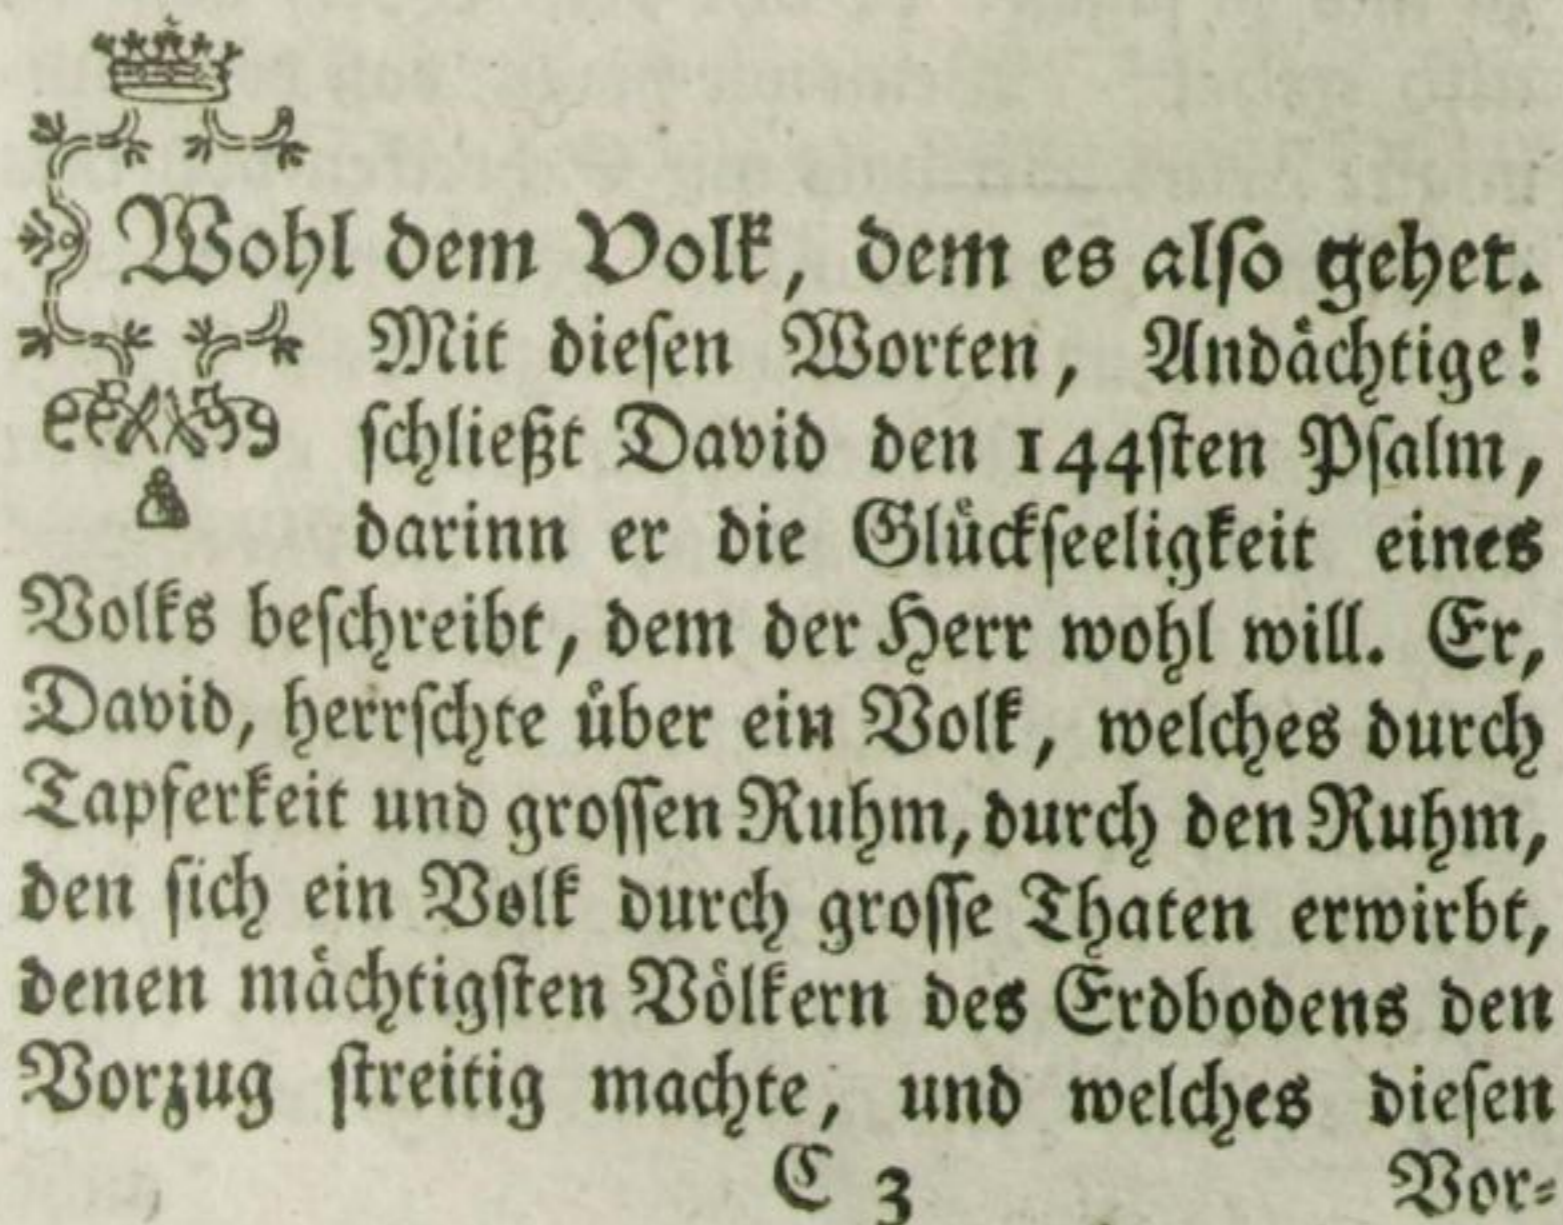 Wohl dem Volk, dem es alſo gehet.
Mit dieſen Worten, Andaͤchtige!
ſchließt David den 144ſten Pſalm,
darinn er die Gluͤckſeeligkeit eines
Volks beſchreibt, dem der Herr wohl will. Er,
David, herrſchte uͤber ein Volk, welches durch
Tapferkeit und groſſen Ruhm, durch den Ruhm,
den ſich ein Volk durch groſſe Thaten erwirbt,
denen maͤchtigſten Voͤlkern des Erdbodens den
Vorzug ſtreitig machte, und welches dieſen
C 3 Vor⸗